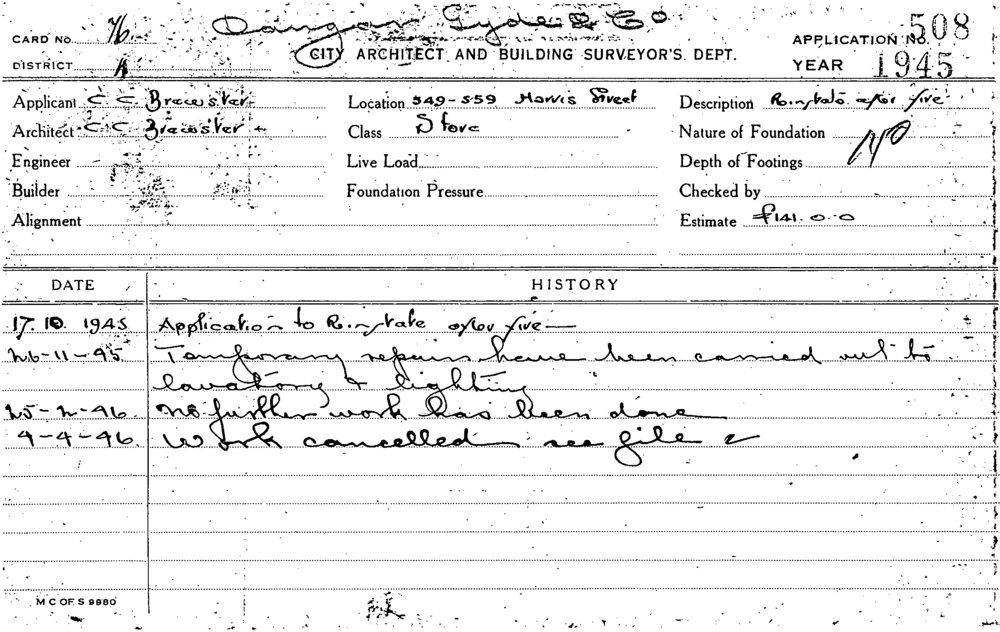 Dangar Gyde & Co
CARD No. 76
APPLICATION No. 508
CITY ARCHITECT AND BUILDING SURVEYOR'S DEPT.
DISTRICT A
YEAR 1945
Applicant C C Brewster Location 549-559 Harris Street Description Reinstate after fire
Architect C C Brewster Class Store Nature of Foundation
Engineer Live Load Depth of Footings
Builder Foundation Pressure Checked by
Alignment Estimate £141.0.0
DATE HISTORY
17.10.1945 Application to Reinstate after fire
26-11-45 Temporary repairs have been carried out to
lavatory & lighting
25-2-46 No further work has been done
4-4-46 Work cancelled see file
M C OF S 9980